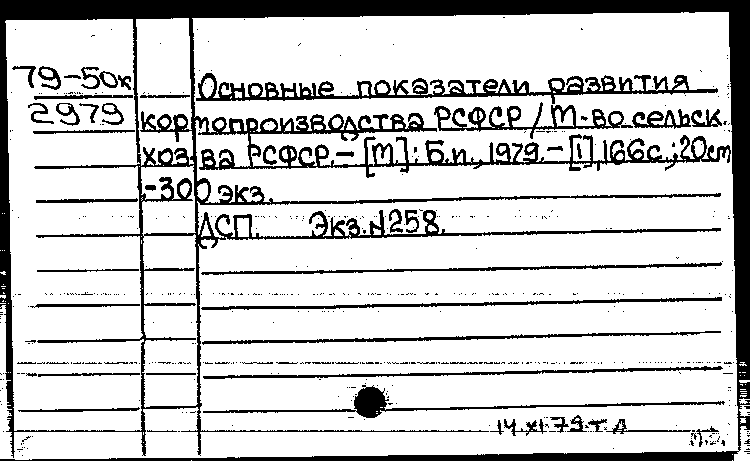 79-50к
2979
Основные показатели развития
кормопроизводства РСФСР / М-во сельск.
хоз-ва РСФСР.- [М.]: Б.и., 1979.- [1], 166с.; 20см
.-300 экз.
ДСП. Экз.N258.
14.XI.79.т.д